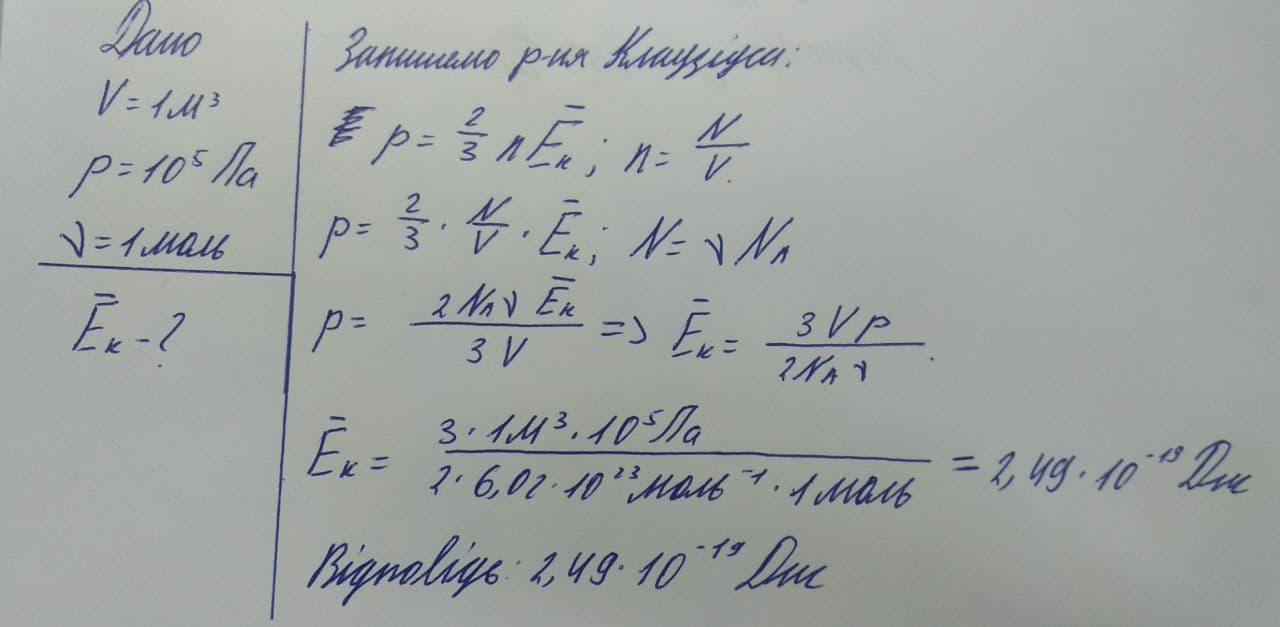 Дано
V = 1 м³
p = 10⁵ Па
ν = 1 моль
Ēк - ?
Запишемо р-ня Клаузіуса:
p = 2/3 n Ēк ; n = N/V.
p = 2/3 · N/V · Ēк ; N = ν N_A
p = 2 N_A ν Ēк / 3 V => Ēк = 3 V p / 2 N_A ν .
Ēк = 3 · 1 м³ · 10⁵ Па / 2 · 6,02 · 10²³ моль⁻¹ · 1 моль = 2,49 · 10⁻¹⁹ Дж
Відповідь: 2,49 · 10⁻¹⁹ Дж